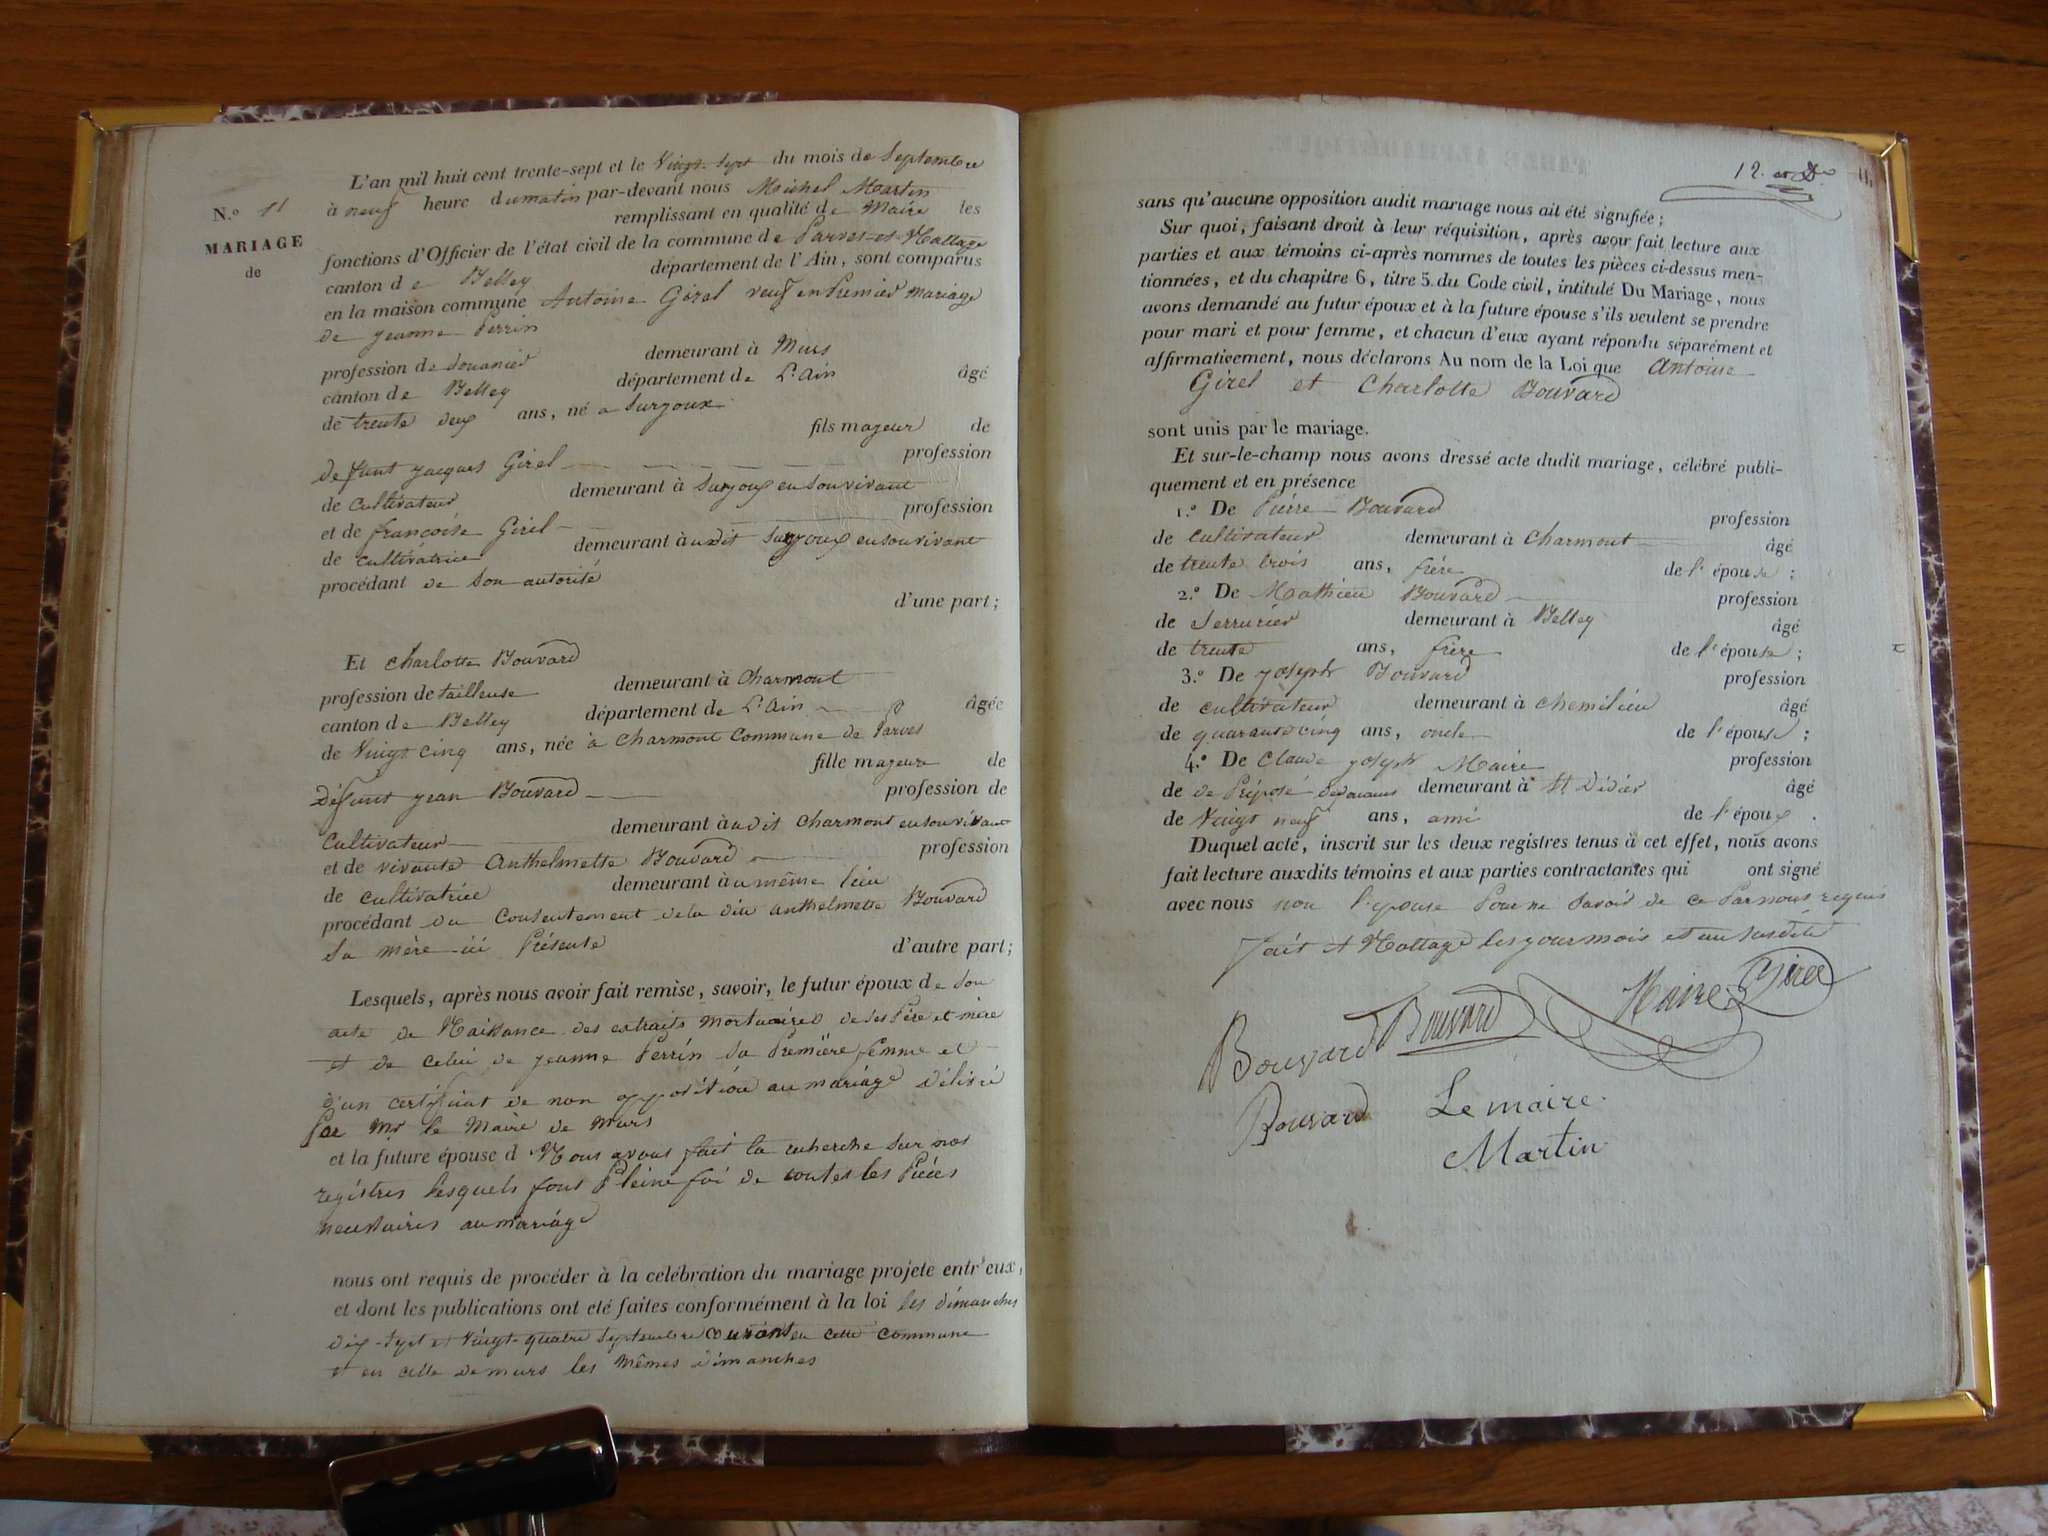 L'an mil huit cent trente-sept et le Vingt-sept du mois de Septembre
N.° 11
à neuf heure du matin par-devant nous Michel Martin
remplissant en qualité de Maire les
MARIAGE
de
fonctions d'Officier de l'état civil de la commune de Parves-et-Nattage
canton de Belley département de l'Ain, sont comparus
en la maison commune Antoine Girel veuf en Premier mariage
de jeanne Perrin
profession de douanier demeurant à Murs
canton de Belley département de L'ain âgé
de trente deux ans, né a Surjoux
fils majeur de
defunt jacques Girel profession
de Cultivateur demeurant à Surjoux en son vivant
et de francoise Girel profession
de cultivatrice demeurant audit Surjoux en son vivant
procédant de Son autorité
d'une part;
Et charlotte Bouvard
profession de tailleuse demeurant à Charmont
canton de Belley département de L'ain âgée
de Vingt cinq ans, née à Charmont Commune de Parves
fille majeure de
Défunt jean Bouvard profession de
Cultivateur demeurant audit Charmont en son vivant
et de vivante Anthelmette Bouvard profession
de cultivatrice demeurant au même lieu
procédant du Consentement de la dite anthelmette Bouvard
Sa mère ici Présente d'autre part;
Lesquels, après nous avoir fait remise, savoir, le futur époux de son
acte de Naissance des extraits mortuaires de ses Père et mère
et de celui de jeanne Perrin Sa Première femme et
d'un certificat de non opposition au mariage Délivré
Par Mr le Maire de Murs
et la future épouse d Nous avons fait la recherche sur nos
registres lesquels font Pleine foi de toutes les Pièces
necessaires au mariage
nous ont requis de procéder à la celébration du mariage projete entr'eux,
et dont les publications ont eté faites conformément à la loi les dimanches
dix-Sept et Vingt-quatre Septembre courant en cette commune
et en celle de murs les mêmes Dimanches
12.
sans qu'aucune opposition audit mariage nous ait été signifiée;
Sur quoi, faisant droit à leur réquisition, après avoir fait lecture aux
parties et aux témoins ci-après nommes de toutes les pièces ci-dessus men-
tionnées, et du chapitre 6, titre 5. du Code civil, intitulé Du Mariage, nous
avons demandé au futur époux et à la future épouse s'ils veulent se prendre
pour mari et pour femme, et chacun d'eux ayant répondu séparément et
affirmativement, nous déclarons Au nom de la Loi que Antoine
Girel et Charlotte Bouvard
sont unis par le mariage.
Et sur-le-champ nous avons dressé acte dudit mariage, célébré publi-
quement et en présence
1.° De Pierre Bouvard profession
de cultivateur demeurant à Charmont âgé
de trente trois ans, frère de l'épouse;
2.° De Mathieu Bouvard profession
de Serrurier demeurant à Belley âgé
de trente ans, frère de l'épouse;
3.° De joseph Bouvard profession
de cultivateur demeurant à chemilieu âgé
de quarante cinq ans, oncle de l'épouse;
4.° De Claude joseph Maire profession
de de Préposé demeurant à St Didier âgé
de Vingt neuf ans, ami de l'époux.
Duquel acte, inscrit sur les deux registres tenus à cet effet, nous avons
fait lecture auxdits témoins et aux parties contractantes qui ont signé
avec nous non l'epouse Pour ne Savoir de ce Par nous requis
fait à Nattage les jour mois et an susdits
Bouvard Bouvard Maire Girel
Bouvard Le maire
Martin